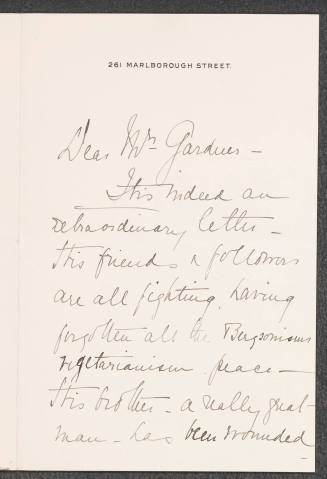 261 MARLBOROUGH STREET.
Dear Mrs Gardner —
It is indeed an
extraordinary letter —
His friends & followers
are all fighting, having
forgotten all the Bergsonisms
vegetarianism peace —
His brother — a really great
man — has been wounded